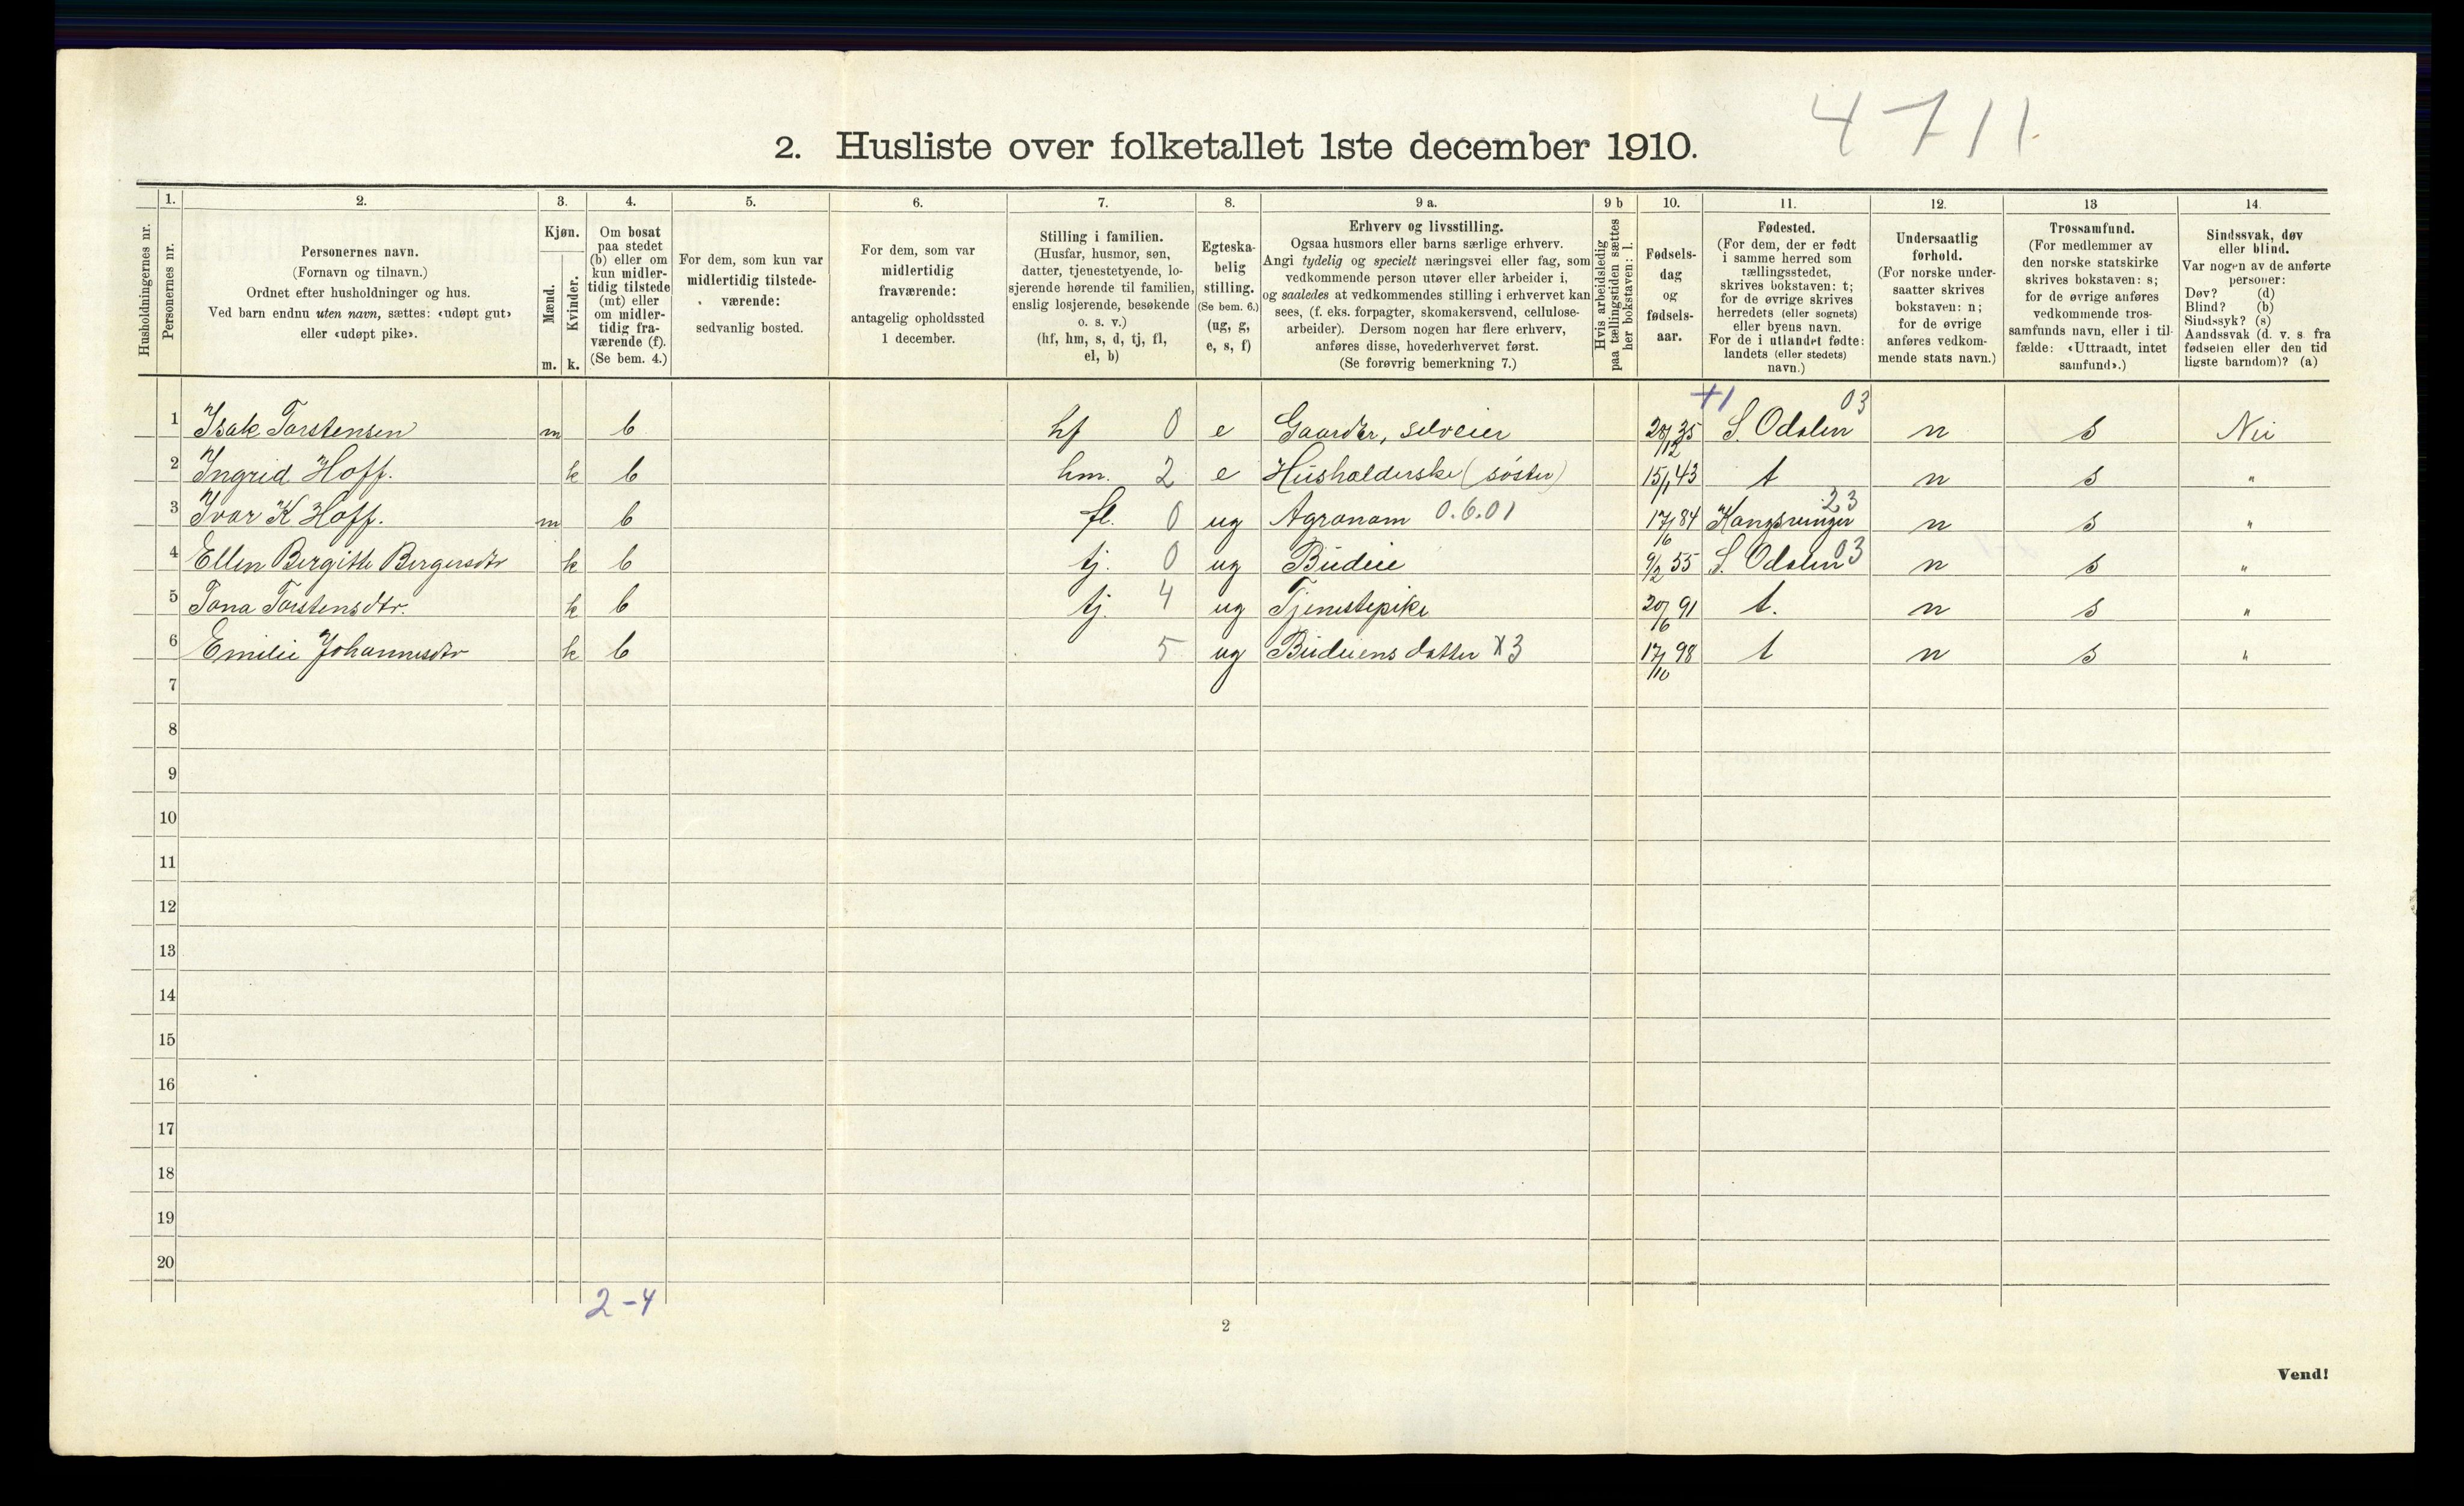 4711
2. Husliste over folketallet 1ste december 1910.
Husholdningernes nr.
1.
Personernes nr.
2.
Personernes navn.
(Fornavn og tilnavn.)
Ordnet efter husholdninger og hus.
Ved barn endnu uten navn, sættes: «udøpt gut»
eller «udøpt pike».
3.
Kjøn.
Mænd.
Kvinder.
m. k.
4.
Om bosat
paa stedet
(b) eller om
kun midler-
tidig tilstede
(mt) eller
om midler-
tidig fra-
værende (f).
(Se bem. 4.)
5.
For dem, som kun var
midlertidig tilstede-
værende:
sedvanlig bosted.
6.
For dem, som var
midlertidig
fraværende:
antagelig opholdssted
1 december.
7.
Stilling i familien.
(Husfar, husmor, søn,
datter, tjenestetyende, lo-
sjerende hørende til familien,
enslig losjerende, besøkende
o. s. v.)
(hf, hm, s, d, tj, fl,
el, b)
8.
Egteska-
belig
stilling.
(Se bem. 6.)
(ug, g,
e, s, f)
9 a.
Erhverv og livsstilling.
Ogsaa husmors eller barns særlige erhverv.
Angi tydelig og specielt næringsvei eller fag, som
vedkommende person utøver eller arbeider i,
og saaledes at vedkommendes stilling i erhvervet kan
sees, (f. eks. forpagter, skomakersvend, cellulose-
arbeider). Dersom nogen har flere erhverv,
anføres disse, hovederhvervet først.
(Se forøvrig bemerkning 7.)
9 b
Hvis arbeidsledig
paa tællingstiden sættes
her bokstaven: l.
10.
Fødsels-
dag
og
fødsels-
aar.
11.
Fødested.
(For dem, der er født
i samme herred som
tællingsstedet,
skrives bokstaven: t;
for de øvrige skrives
herredets (eller sognets)
eller byens navn.
For de i utlandet fødte:
landets (eller stedets)
navn.)
12.
Undersaatlig
forhold.
(For norske under-
saatter skrives
bokstaven: n;
for de øvrige
anføres vedkom-
mende stats navn.)
13
Trossamfund.
(For medlemmer av
den norske statskirke
skrives bokstaven: s;
for de øvrige anføres
vedkommende tros-
samfunds navn, eller i til-
fælde: «Uttraadt, intet
samfund».)
14.
Sindssvak, døv
eller blind.
Var nogen av de anførte
personer:
Døv? (d)
Blind? (b)
Sindssyk? (s)
Aandssvak (d. v. s. fra
fødselen eller den tid
ligste barndom)? (a)
+1 03
1 Isak Torstensen m b hf 0 e Gaardbr, selveier 28/12 35 S. Odalen n s Nei
2 Ingrid Hoff. k b hm. 2 e Husholderske (søster) 15/1 43 t n s "
3 Ivar K Hoff. m b fl. 0 ug Agronom 0.6.01 17/6 84 Kongsvinger 23 n s "
4 Ellen Bergitte Bergersdtr k b tj. 0 ug Budeie 9/2 55 S. Odalen 03 n s "
5 Tona Torstensdtr. k b tj. 4 ug Tjenestepike 20/6 91 t. n s "
6 Emilie Johannesdtr k b 5 ug Budeiens datter X3 17/10 98 t n s "
7
8
9
10
11
12
13
14
15
16
17
18
19
20
2-4
2
Vend!